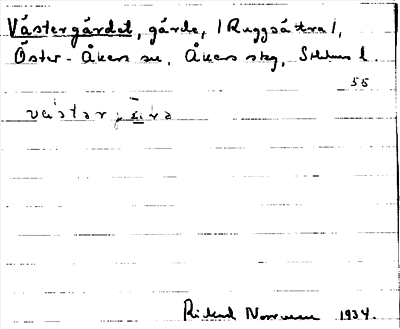 Västergärdet, gärde, /Ruggsättra/,
Öster-Åkers sn, Åkers skg, Sthlms l.
55
Rikard Norrman 1934.